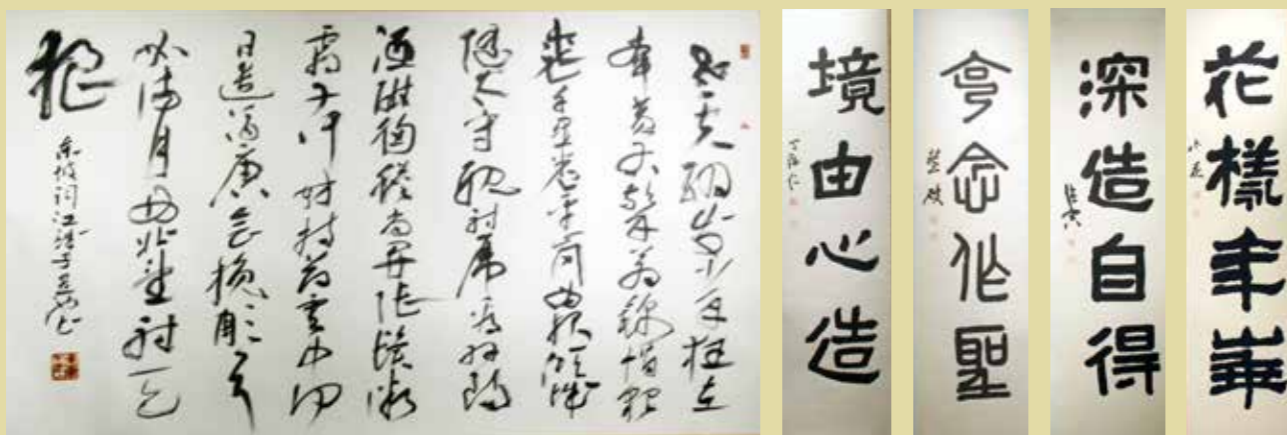 老夫聊發少年狂左
牽黃右擎蒼錦帽貂
裘千騎卷平岡為報傾城
隨太守親射虎看孫郎
酒酣胸膽尚開張鬢微
霜又何妨持節雲中何
日遣馮唐會挽雕弓
如滿月西北望射天
狼
東坡詞江城子
境由心造
克念作聖
深造自得
花樣年華